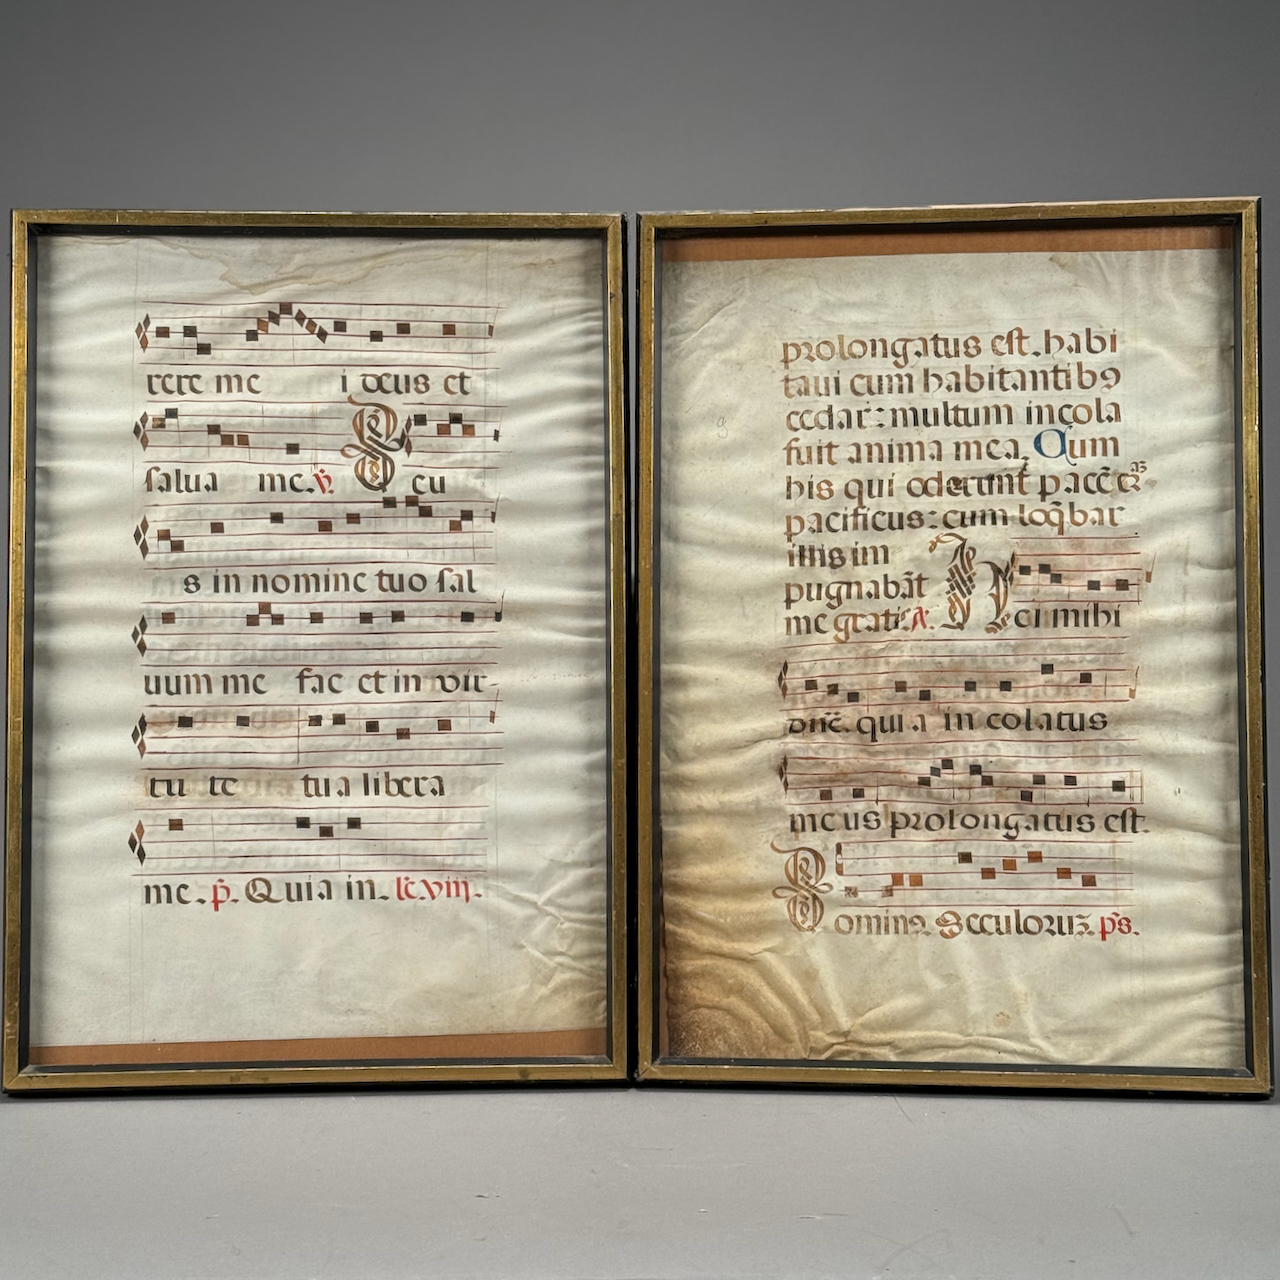 rere me i deus et
salua me. ℣. D eu
s in nomine tuo sal
uum me fac et in vir-
tu te tua libera
me. p̃. Quia in. lc̃. viij.
prolongatus est. habi
taui cum habitantibꝯ
cedar: multum incola
fuit anima mea. Cum
his qui oderunt pacē
pacificus: cum loq̄bar
illis im
pugnabāt
me gratis. A. H ei mihi
dñe. qui a in colatus
me us prolongatus est.
D omine. Seculoruz. ps.